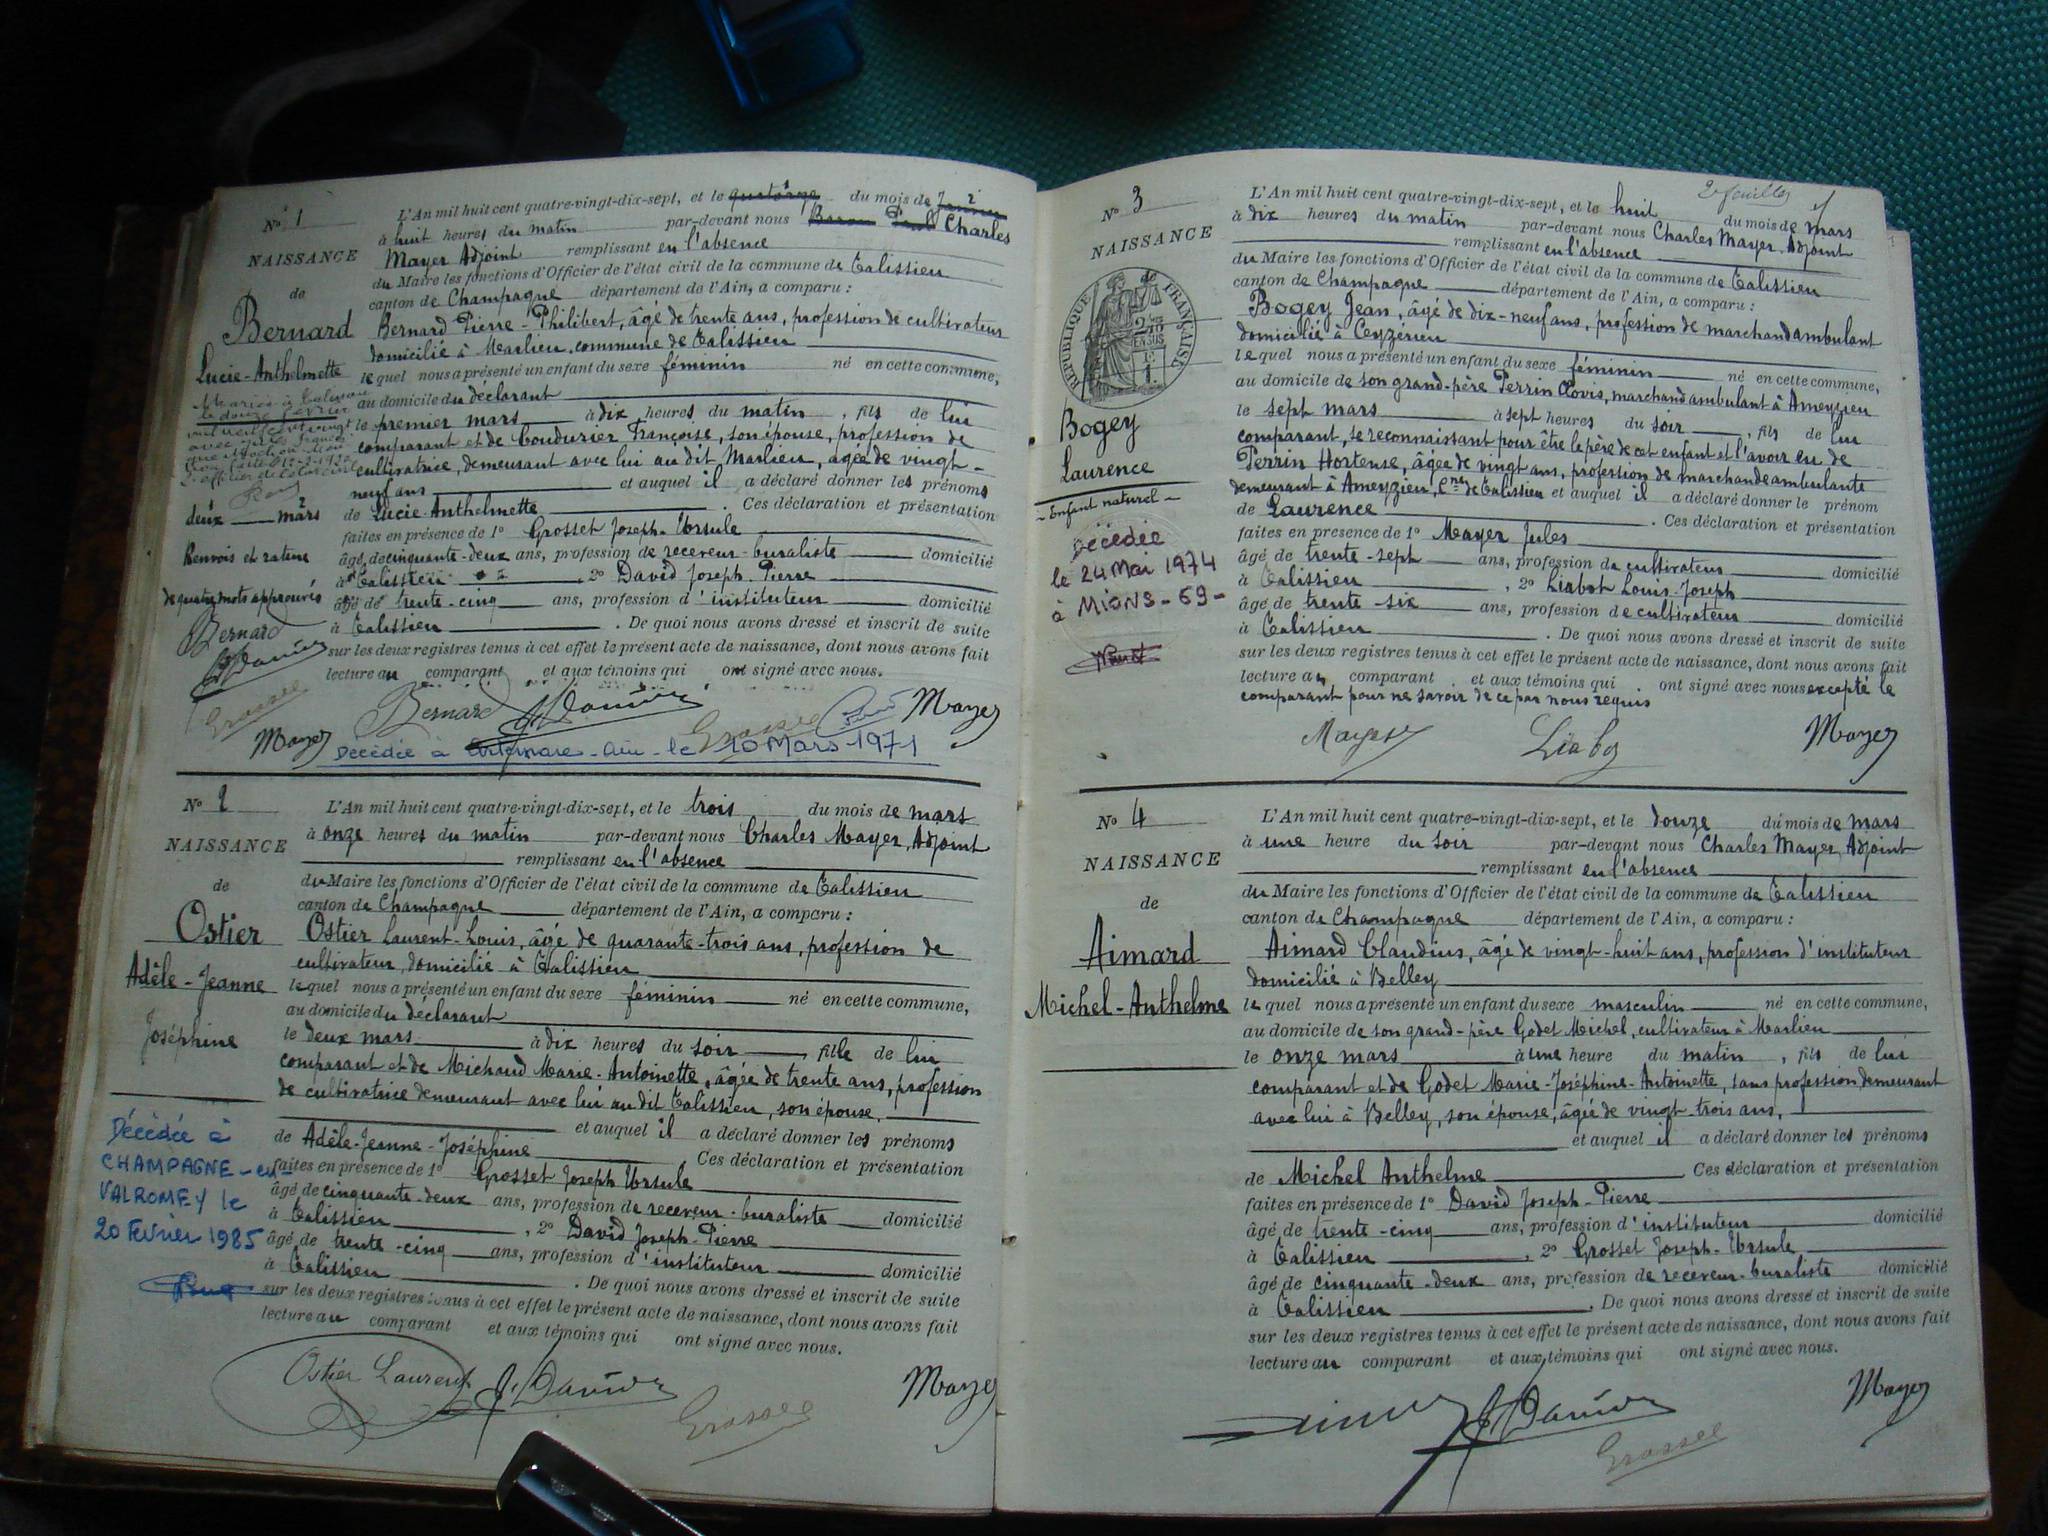 N° 1
NAISSANCE
de
Bernard
Lucie-Anthelmette
Mariée à
le douze février
mil neuf cent vingt
deux mars
Renvois et rature
de quatre mots approuvés
Bernard
J. David
Grosset
Mayer
L'An mil huit cent quatre-vingt-dix-sept, et le quatorze 1 du mois de Janvier 2
à huit heures du matin par-devant nous Baron Paul Charles
Mayer Adjoint remplissant en l'absence
du Maire les fonctions d'Officier de l'état civil de la commune de Talissieu
canton de Champagne département de l'Ain, a comparu :
Bernard Pierre-Philibert, âgé de trente ans, profession de cultivateur
domicilié à Marlieu, commune de Talissieu
lequel nous a présenté un enfant du sexe féminin né en cette commune,
au domicile du déclarant
le premier mars à dix heures du matin, fils de lui
comparant et de Coudurier Françoise, son épouse, profession de
cultivatrice, demeurant avec lui au dit Marlieu, âgée de vingt-
neuf ans et auquel il a déclaré donner les prénoms
de Lucie-Anthelmette. Ces déclaration et présentation
faites en présence de 1° Grosset Joseph-Ursule
âgé de cinquante-deux ans, profession de receveur-buraliste domicilié
à Talissieu, 2° David Joseph-Pierre
âgé de trente-cinq ans, profession d'instituteur domicilié
à Talissieu. De quoi nous avons dressé et inscrit de suite
sur les deux registres tenus à cet effet le présent acte de naissance, dont nous avons fait
lecture au comparant et aux témoins qui ont signé avec nous.
Bernard J. David Grosset Mayer
Décédée à Artemare-Ain-le 10 Mars-1971
N° 2
NAISSANCE
de
Ostier
Adèle-Jeanne
Joséphine
Décédée à
CHAMPAGNE-en-
VALROMEY le
20 Février 1985
L'An mil huit cent quatre-vingt-dix-sept, et le trois du mois de mars
à onze heures du matin par-devant nous Charles Mayer, Adjoint
remplissant en l'absence
du Maire les fonctions d'Officier de l'état civil de la commune de Talissieu
canton de Champagne département de l'Ain, a comparu :
Ostier Laurent-Louis, âgé de quarante-trois ans, profession de
cultivateur, domicilié à Talissieu
lequel nous a présenté un enfant du sexe féminin né en cette commune,
au domicile du déclarant
le deux mars à dix heures du soir, fille de lui
comparant et de Michaud Marie-Antoinette, âgée de trente ans, profession
de cultivatrice demeurant avec lui au dit Talissieu, son épouse.
et auquel il a déclaré donner les prénoms
de Adèle-Jeanne-Joséphine Ces déclaration et présentation
faites en présence de 1° Grosset Joseph Ursule
âgé de cinquante-deux ans, profession de receveur-buraliste domicilié
à Talissieu, 2° David Joseph-Pierre
âgé de trente-cinq ans, profession d'instituteur domicilié
à Talissieu. De quoi nous avons dressé et inscrit de suite
sur les deux registres tenus à cet effet le présent acte de naissance, dont nous avons fait
lecture au comparant et aux témoins qui ont signé avec nous.
Ostier Laurent J. David Grosset Mayer
2e feuillet
N° 3
NAISSANCE
de
RÉPUBLIQUE FRANÇAISE
Bogey
Laurence
- Enfant naturel -
Décédée
le 24 Mai 1974
à MIONS-69-
L'An mil huit cent quatre-vingt-dix-sept, et le huit du mois de mars
à dix heures du matin par-devant nous Charles Mayer, Adjoint
remplissant en l'absence
du Maire les fonctions d'Officier de l'état civil de la commune de Talissieu
canton de Champagne département de l'Ain, a comparu :
Bogey Jean, âgé de dix-neuf ans, profession de marchand ambulant
domicilié à Ceyzérieu
lequel nous a présenté un enfant du sexe féminin né en cette commune,
au domicile de son grand-père Perrin Clovis, marchand ambulant à Ameyzieu
le sept mars à sept heures du soir, fils de lui
comparant, se reconnaissant pour être le père de cet enfant et l'avoir eu de
Perrin Hortense, âgée de vingt ans, profession de marchande ambulante
demeurant à Ameyzieu, Cne de Talissieu et auquel il a déclaré donner le prénom
de Laurence. Ces déclaration et présentation
faites en présence de 1° Mayer Jules
âgé de trente-sept ans, profession de cultivateur domicilié
à Talissieu, 2° Liabot Louis-Joseph
âgé de trente-six ans, profession de cultivateur domicilié
à Talissieu. De quoi nous avons dressé et inscrit de suite
sur les deux registres tenus à cet effet le présent acte de naissance, dont nous avons fait
lecture au comparant et aux témoins qui ont signé avec nous excepté le
comparant pour ne savoir de ce par nous requis
Mayer Liabot Mayer
N° 4
NAISSANCE
de
Aimard
Michel-Anthelme
L'An mil huit cent quatre-vingt-dix-sept, et le douze du mois de mars
à une heure du soir par-devant nous Charles Mayer, Adjoint
remplissant en l'absence
du Maire les fonctions d'Officier de l'état civil de la commune de Talissieu
canton de Champagne département de l'Ain, a comparu :
Aimard Claudius, âgé de vingt-huit ans, profession d'instituteur
domicilié à Belley
lequel nous a présenté un enfant du sexe masculin né en cette commune,
au domicile de son grand-père Godet Michel, cultivateur à Marlieu
le onze mars à une heure du matin, fils de lui
comparant et de Godet Marie-Joséphine-Antoinette, sans profession demeurant
avec lui à Belley, son épouse, âgée de vingt-trois ans,
et auquel il a déclaré donner les prénoms
de Michel Anthelme Ces déclaration et présentation
faites en présence de 1° David Joseph-Pierre
âgé de trente-cinq ans, profession d'instituteur domicilié
à Talissieu, 2° Grosset Joseph-Ursule
âgé de cinquante-deux ans, profession de receveur-buraliste domicilié
à Talissieu. De quoi nous avons dressé et inscrit de suite
sur les deux registres tenus à cet effet le présent acte de naissance, dont nous avons fait
lecture au comparant et aux témoins qui ont signé avec nous.
J. David Grosset Mayer